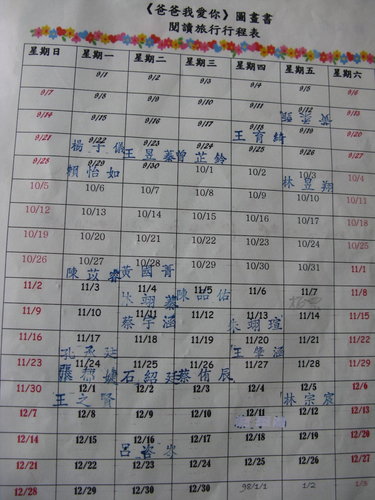 《爸爸我愛你》圖畫書
閱讀旅行行程表
星期日 星期一 星期二 星期三 星期四 星期五 星期六
9/1 9/2 9/3 9/4 9/5 9/6
9/7 9/8 9/9 9/10 9/11 9/12 9/13
9/14 9/15 9/16 9/17 9/18 9/19 9/20
王育綺
9/21 9/22 9/23 9/24 9/25 9/26 9/27
楊子儀 王昱蓁 曾芷鈴
9/28 9/29 9/30 10/1 10/2 10/3 10/4
賴怡如 林昱翔
10/5 10/6 10/7 10/8 10/9 10/10 10/11
10/12 10/13 10/14 10/15 10/16 10/17 10/18
10/19 10/20 10/21 10/22 10/23 10/24 10/25
10/26 10/27 10/28 10/29 10/30 10/31 11/1
陳苡 黃國菁
11/2 11/3 11/4 11/5 11/6 11/7 11/8
朱翊蓁 陳品佑
11/9 11/10 11/11 11/12 11/13 11/14 11/15
蔡宇涵 朱翊瑄
11/16 11/17 11/18 11/19 11/20 11/21 11/22
孔 廷 王笙涵
11/23 11/24 11/25 11/26 11/27 11/28 11/29
張 婕 石紹廷 蔡侑辰
11/30 12/1 12/2 12/3 12/4 12/5 12/6
王之賢 林宗宸
12/7 12/8 12/9 12/10 12/11 12/12 12/13
12/14 12/15 12/16 12/17 12/18 12/19 12/20
呂
12/21 12/22 12/23 12/24 12/25 12/26 12/27
12/28 12/29 12/30 12/30 98/1/1 1/2 1/3